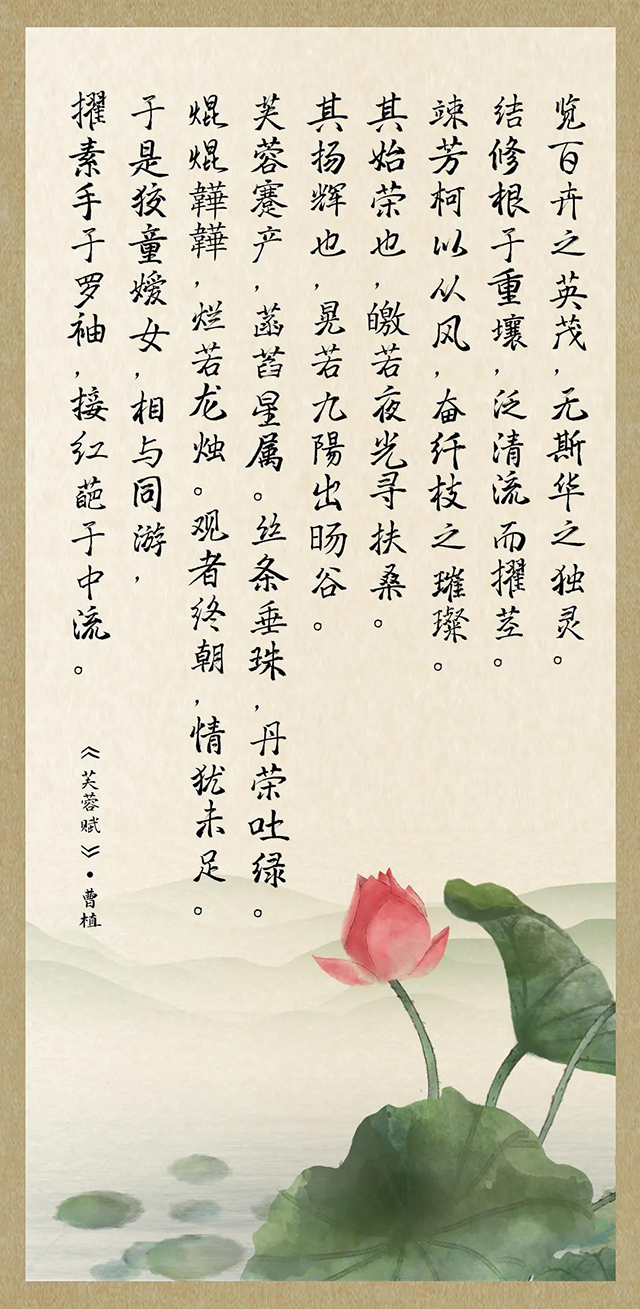 览百卉之英茂，无斯华之独灵。
结修根于重壤，泛清流而擢茎。
竦芳柯以从风，奋纤枝之璀璨。
其始荣也，皦若夜光寻扶桑。
其扬辉也，晃若九陽出旸谷。
芙蓉蹇产，菡萏星属。丝条垂珠，丹荣吐绿。
焜焜韡韡，烂若龙烛。观者终朝，情犹未足。
于是狡童嫒女，相与同游，
擢素手于罗袖，接红葩于中流。
《芙蓉赋》·曹植